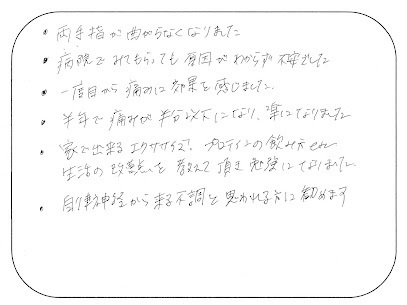 ・両手指が曲がらなくなりました
・病院でみてもらっても原因がわからず不安でした
・一度目から痛みに効果を感じました.
・半年で痛みが半分以下になり、楽になりました
・家で出来るエクササイズ、プロテインの飲み方etc
生活の改善を教えて頂き勉強になりました
・自律神経から来る不調と思われる方に勧めます